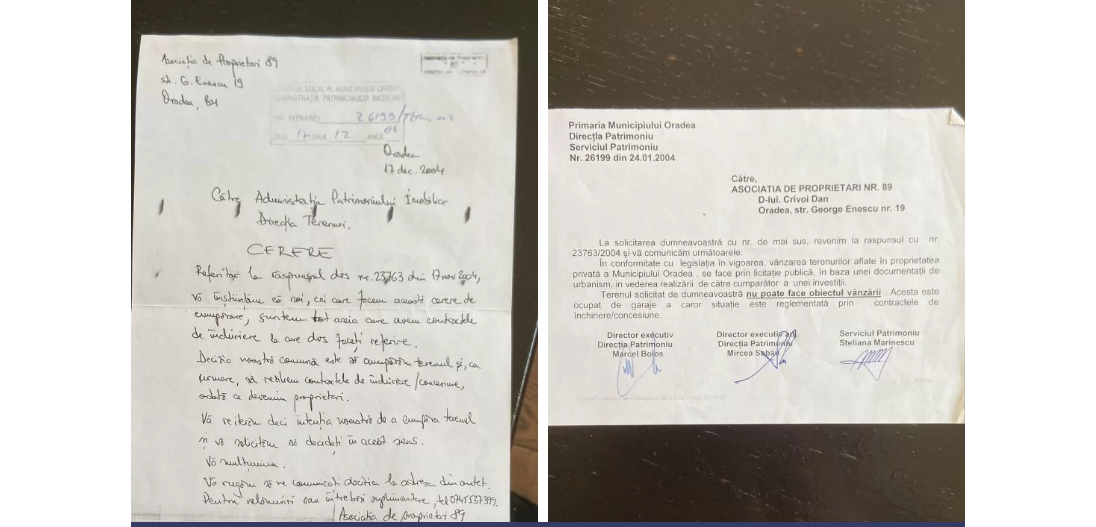 Asociația de Proprietari 89
st. G. Enescu 19
Oradea, BH
LOCAL AL MUNICIPIULUI ORADEA
ADMINISTRAȚIA PATRIMONIULUI IMOBILIAR
NR. INTRARE: 26199
ZIUA 17 LUNA 12 ANUL 04
Oradea
17 dec. 2004
Către Administrația Patrimoniului Imobiliar
Direcția Terenuri.
CERERE
Referitor la răspunsul dvs nr. 23763 din 17 nov 2004,
vă înștiințăm că noi, cei care facem această cerere de
cumpărare, suntem tot aceia care avem contractele
de închiriere la care dvs faceți referire.
Decizia noastră comună este să cumpărăm terenul și, ca
urmare, să reziliem contractele de închiriere/concesiune,
odată ce devenim proprietari.
Vă reiterăm deci intenția noastră de a cumpăra terenul
și vă solicităm să decideți în acest sens.
Vă mulțumim.
Vă rugăm să ne comunicați decizia la adresa din antet.
Pentru relămuriri sau întrebări suplimentare, tel 0745537399
Asociația de proprietari 89
Primaria Municipiului Oradea
Direcția Patrimoniu
Serviciul Patrimoniu
Nr. 26199 din 24.01.2004
Către,
ASOCIATIA DE PROPRIETARI NR. 89
D-lui. Crivoi Dan
Oradea, str. George Enescu nr. 19
La solicitarea dumneavoastră cu nr. de mai sus, revenim la raspunsul cu nr.
23763/2004 şi vă comunicăm următoarele:
În conformitate cu legislația in vigoarea, vânzarea terenurilor aflate în proprietatea
privată a Municipiului Oradea , se face prin licitație publică, în baza unei documentații de
urbanism, in vederea realizării de către cumpărător a unei investiții.
Terenul solicitat de dumneavoastră nu poate face obiectul vânzării . Acesta este
ocupat de garaje a caror situație este reglementată prin contractele de
închiriere/concesiune.
Director executiv
Direcția Patrimoniu
Marcel Boloş
Director executiv adj.
Direcția Patrimoniu
Mircea Sabău
Serviciul Patrimoniu
Steliana Marinescu